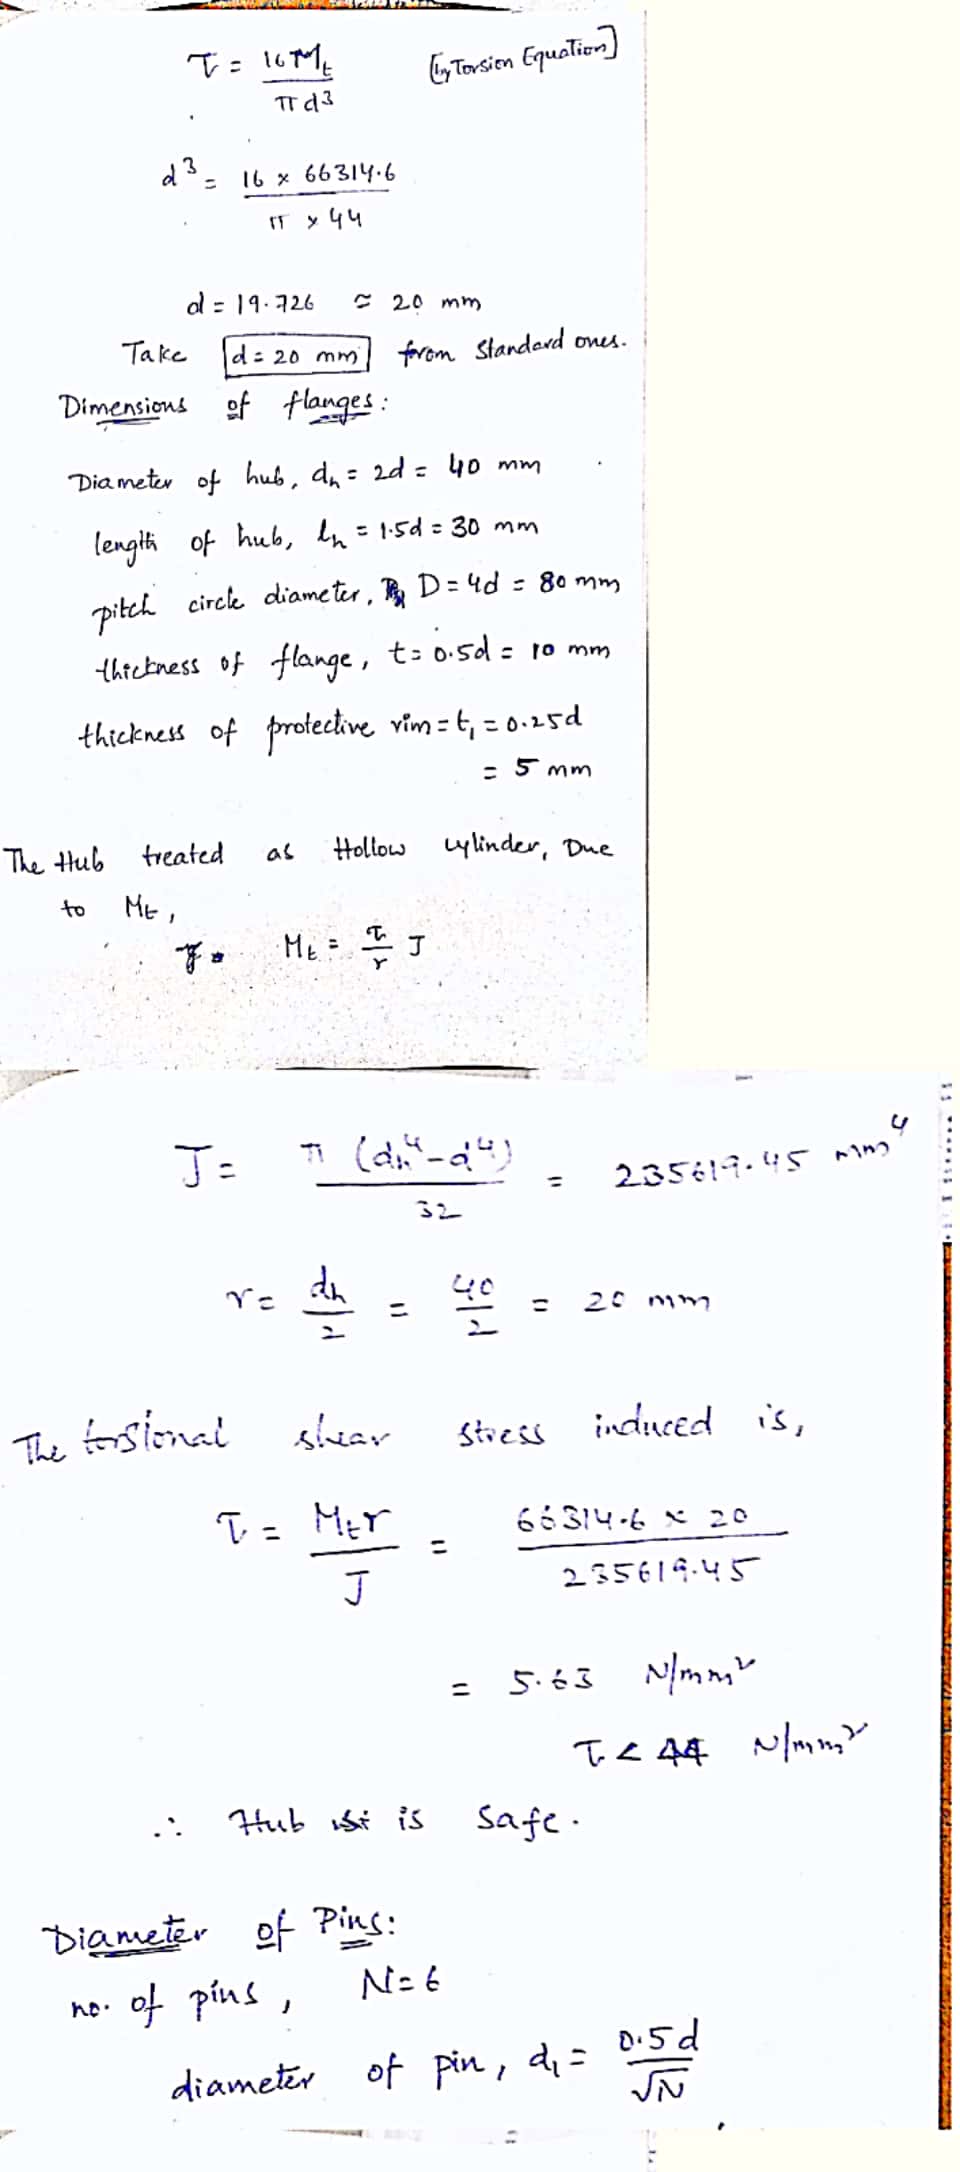 τ = 16 Mt / π d³ [by Torsion Equation]
d³ = 16 × 66314.6 / π × 44
d = 19.726 ≃ 20 mm
Take d = 20 mm from Standard ones.
Dimensions of flanges:
Diameter of hub, dh = 2d = 40 mm
length of hub, lh = 1.5d = 30 mm
pitch circle diameter, D = 4d = 80 mm
thickness of flange, t = 0.5d = 10 mm
thickness of protective rim = t₁ = 0.25d
= 5 mm
The Hub treated as Hollow cylinder, Due
to Mt,
Mt = τ/r J
J = π (dh⁴ - d⁴) / 32 = 235619.45 mm⁴
r = dh/2 = 40/2 = 20 mm
The torsional shear stress induced is,
τ = Mt r / J = 66314.6 × 20 / 235619.45
= 5.63 N/mm²
τ < 44 N/mm²
∴ Hub is safe.
Diameter of Pins:
no. of pins, N = 6
diameter of pin, d₁ = 0.5d / √N